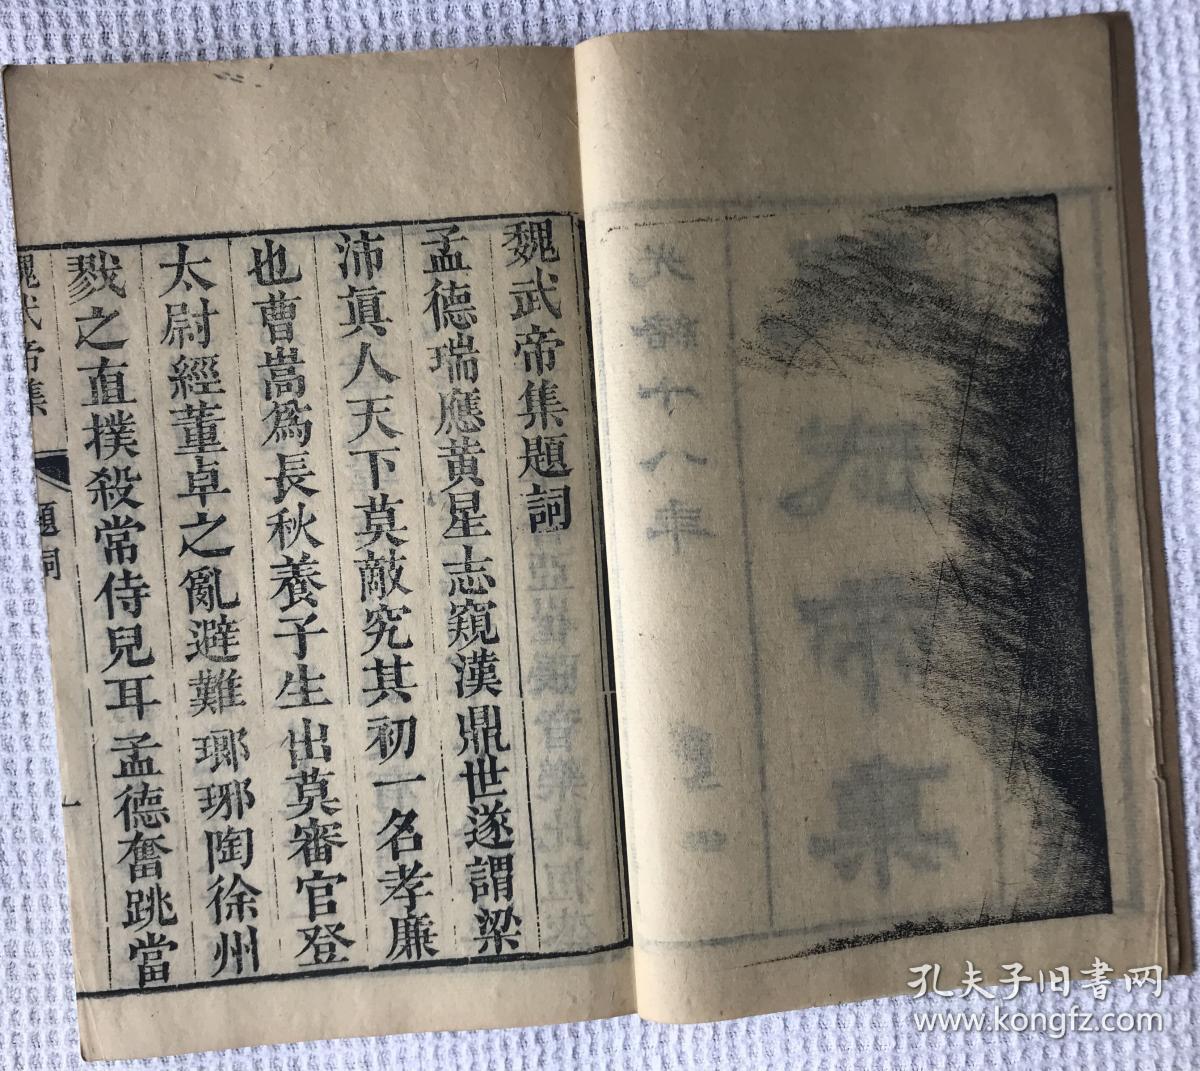 魏武帝集題詞
孟德瑞應黃星志窺漢鼎世遂謂梁
沛眞人天下莫敵究其初一名孝廉
也曹嵩爲長秋養子生出莫審官登
太尉經董卓之亂避難瑯琊陶徐州
戮之直撲殺常侍兒耳孟德奮跳當
魏武帝集
題詞
一
武帝集
光緒十八年
孔夫子旧书网
www.kongfz.com